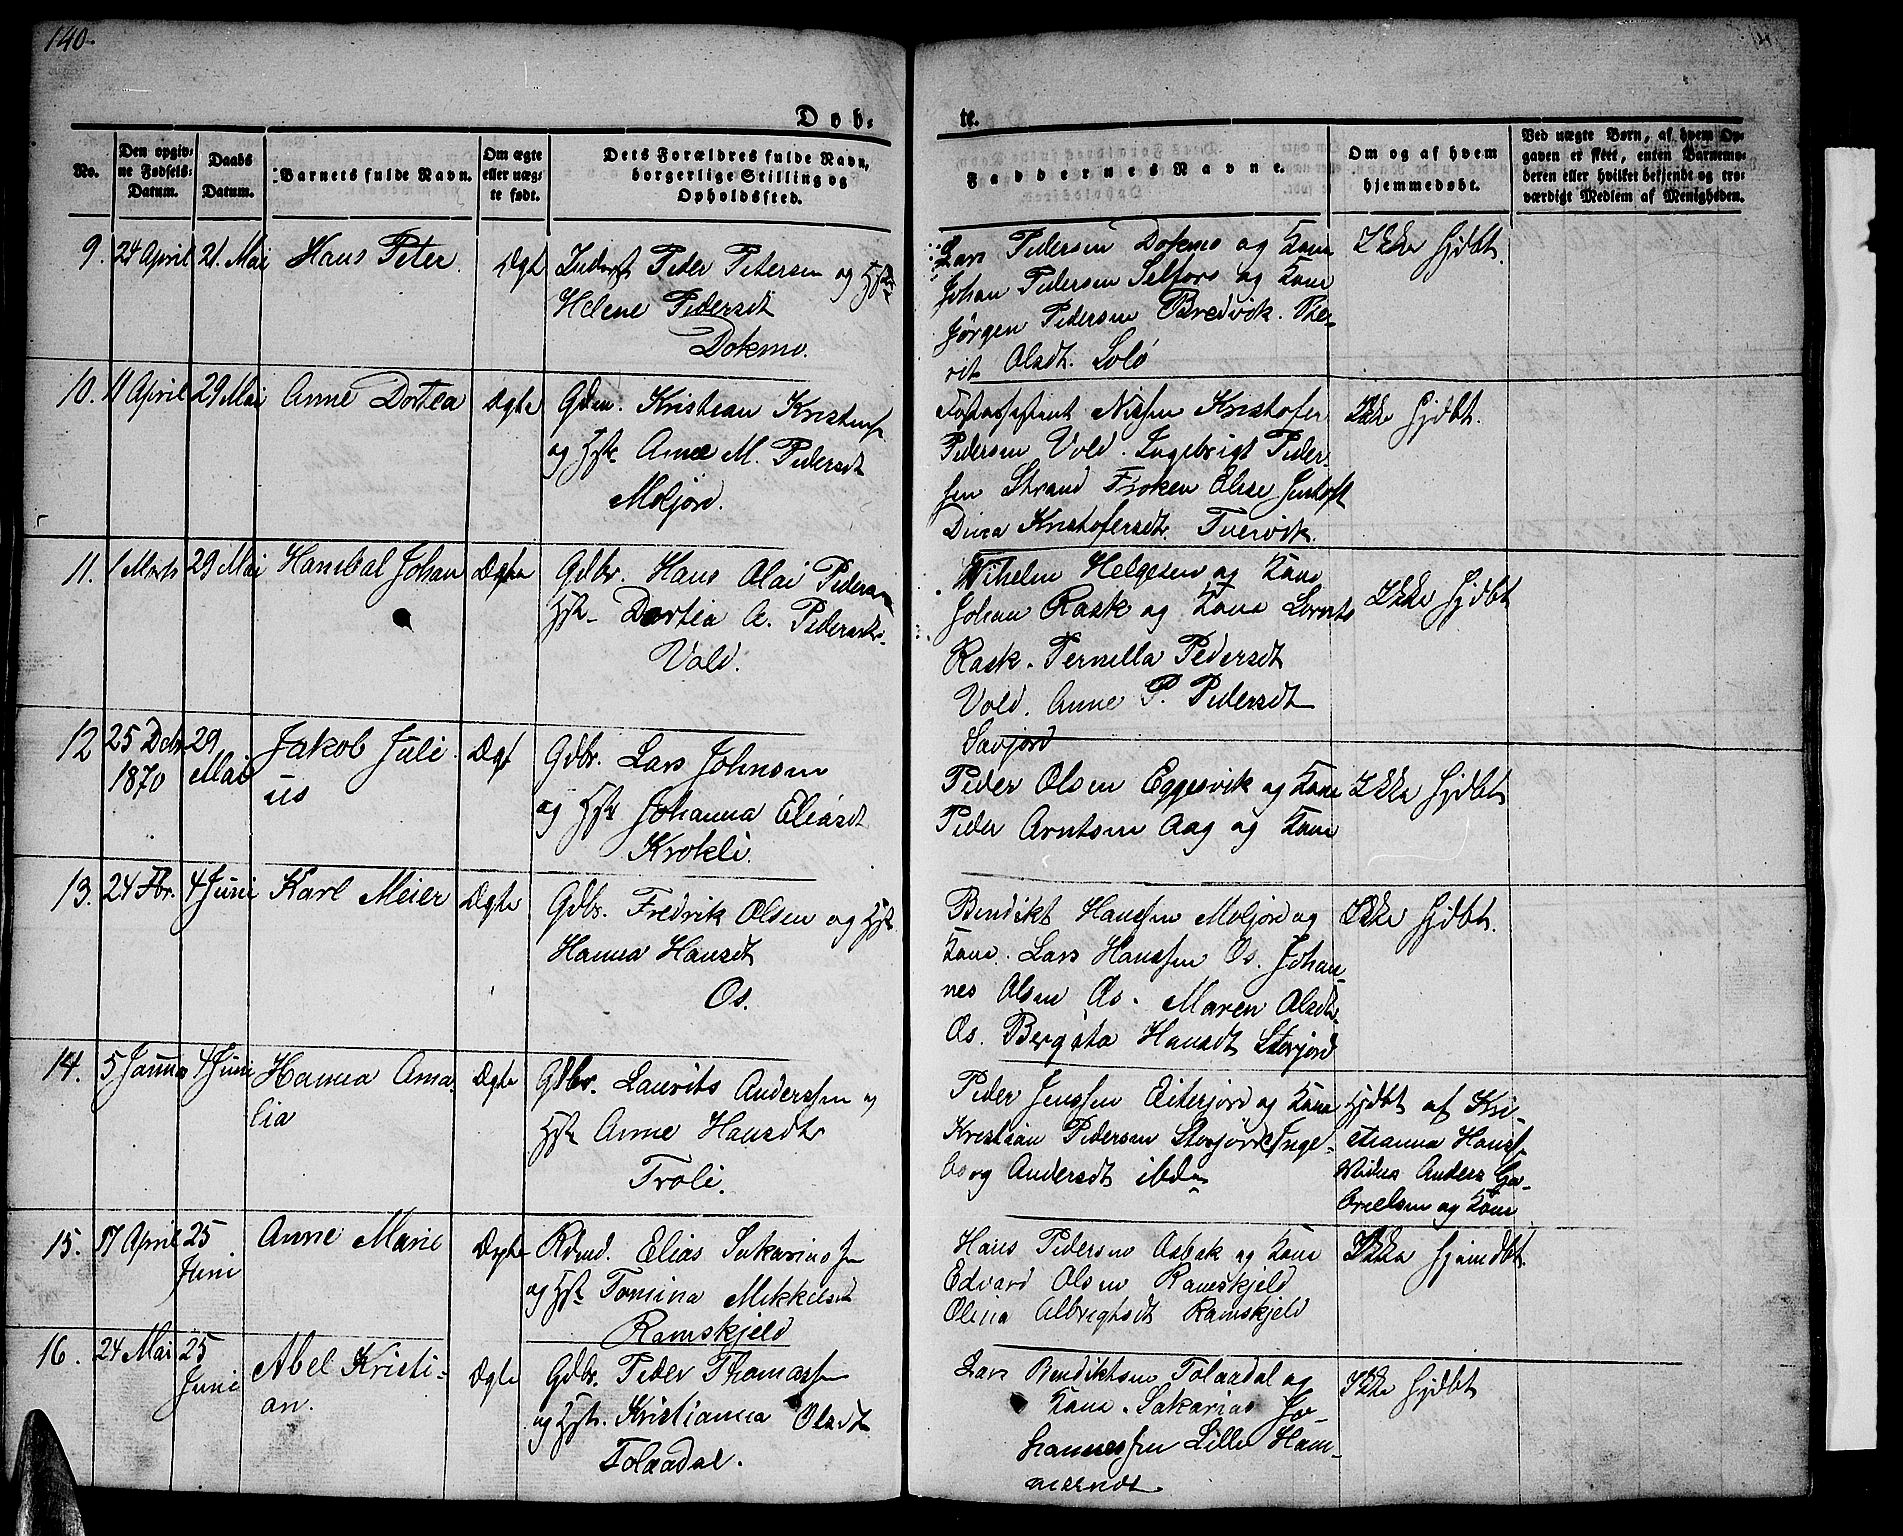 140
Døb-
te.
No.
Den opgiv-
ne Fødsels-
Datum.
Daabs
Datum.
Barnets fulde Navn.
Om ægte
eller uæg-
te født.
Dets Forældres fulde Navn,
borgerlige Stilling og
Opholdssted.
Faddernes Navne.
Om og af hvem
hjemmedøbt.
Ved uægte Børn, af hvem Op-
gaven er skeet, enten Barnemo-
deren eller hvilket bekjendt og tro-
værdigt Medlem af Menigheden.
9. 24 April 21. Mai Hans Peter. Ægte
Peder Petersen og Hst
Helene Pedersdt
Dokmo.
Lars Pedersen Dokmo og Kone
Johan Pedersen Selfors og Kone
Jørgen Pedersen Bredvik. Be-
rit Olsdt. Solø
Ikke Hjdbt.
10. 11 April 29 Mai Anne Dortea Ægte
Gdm. Kristian Kristens
og Hst. Anne M. Pedersdt
Moljord.
Nissen Kristofer
Pedersen Vold. Ingebrigt Peder-
sen Strand Frøken Elise
Dina Kristofersdt. Tvervik.
Ikke Hjdbt.
11. 1 Marts 29 Mai Hanibal Johan Ægte
Gdbr. Hans Olai Pedersen
Hst. Dortea A. Pedersdt.
Vold.
Vilhelm Helgesen og Kone
Johan Rask og Kone Lornts
Rask. Pernella Pedersdt
Vold. Anne P. Pedersdt
Savjord
Ikke Hjdbt
12 25 Debr 29
1870 Mai
Jakob Juli-
us
Ægt
Gdbr. Lars Johnsen
og Hst Johanna Eliasdt
Krokli.
Peder Olsen Eggesvik og Kone
Peder Arntsen Aag og Kone
Ikke Hjdbt
13. 24 Fbr. 4 Juni Karl Meier Ægte
Gdbr. Fredrik Olsen og Hst
Hanna Hansdt
Os.
Bendikt Hanssen Moljord og
Kone. Lars Hanssen Os. Johan-
nes Olsen Os. Maren Olsdt.
Os. Bergita Hansdt Storjord
Ikke Hjdbt.
14. 5 Januar 4 Juni Hanna Ama-
lia
Ægte
Gdbr. Laurits Anderssen og
Hst Anne Hansdt
Troli.
Peder Jenssen Eiterjord og Kone
Kristian Pedersen Storjord Inge-
borg Andersdt ibdm
Hjdbt af Kri-
stianna Hansd
Anders Ga-
brielsen og Kone
15. 17 April 25
Juni
Anne Marie Ægte
Elias Sakariassen
og Hst Tomina Mikkelsdt
Ramskjeld
Hans Pedersen Osbak og Kone
Edvard Olsen Ramskjeld
Olina Albrigtsdt Ramskjeld
Ikke Hjemdbt.
16. 24 Mai 25
Juni
Abel Kristi-
an.
Ægte
Gdbr. Peder Thomassen
og Hst. Kristianna Olsdt
Tolaadal.
Lars Bendiktsen Tolaadal og
Kone. Sakarias Jo-
hannessen Lille Ham-
merndt.
Ikke Hjdbt